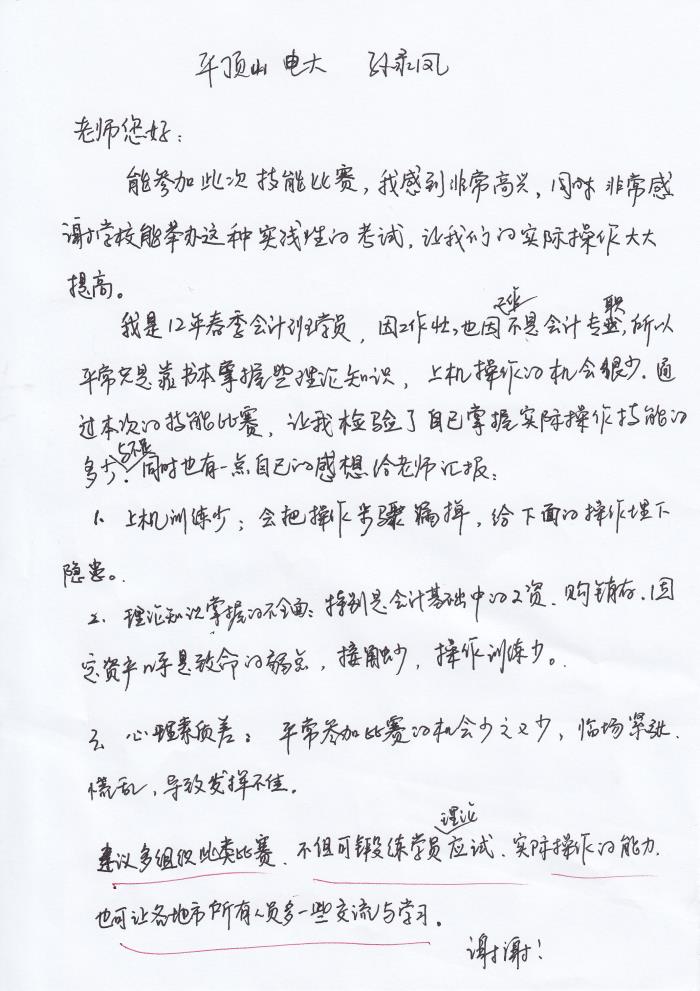 平顶山 电大 孙承凤
老师您好:
能参加此次技能比赛,我感到非常高兴,同时非常感
谢学校能举办这种实践性的考试,让我们的实际操作大大
提高。
我是12年春季会计班学员,因工作忙,也因工作不是会计专业职,所以
平常只是靠书本掌握些理论知识,上机操作的机会很少.通
过本次的技能比赛,让我检验了自己掌握实际操作技能的
多少与不足.同时也有一点自己的感想给老师汇报:
1、上机训练少;会把操作步骤漏掉,给下面的操作埋下
隐患。
2、理论知识掌握的不全面:特别是会计基础中的工资、购销存、固
定资产等是致命的弱点,接触少,操作训练少。
3、心理素质差:平常参加比赛的机会少之又少,临场紧张、
慌乱,导致发挥不佳。
建议多组织此类比赛、不但可锻练学员理论应试、实际操作的能力.
也可让各地市所有人员多一些交流与学习。
谢谢!